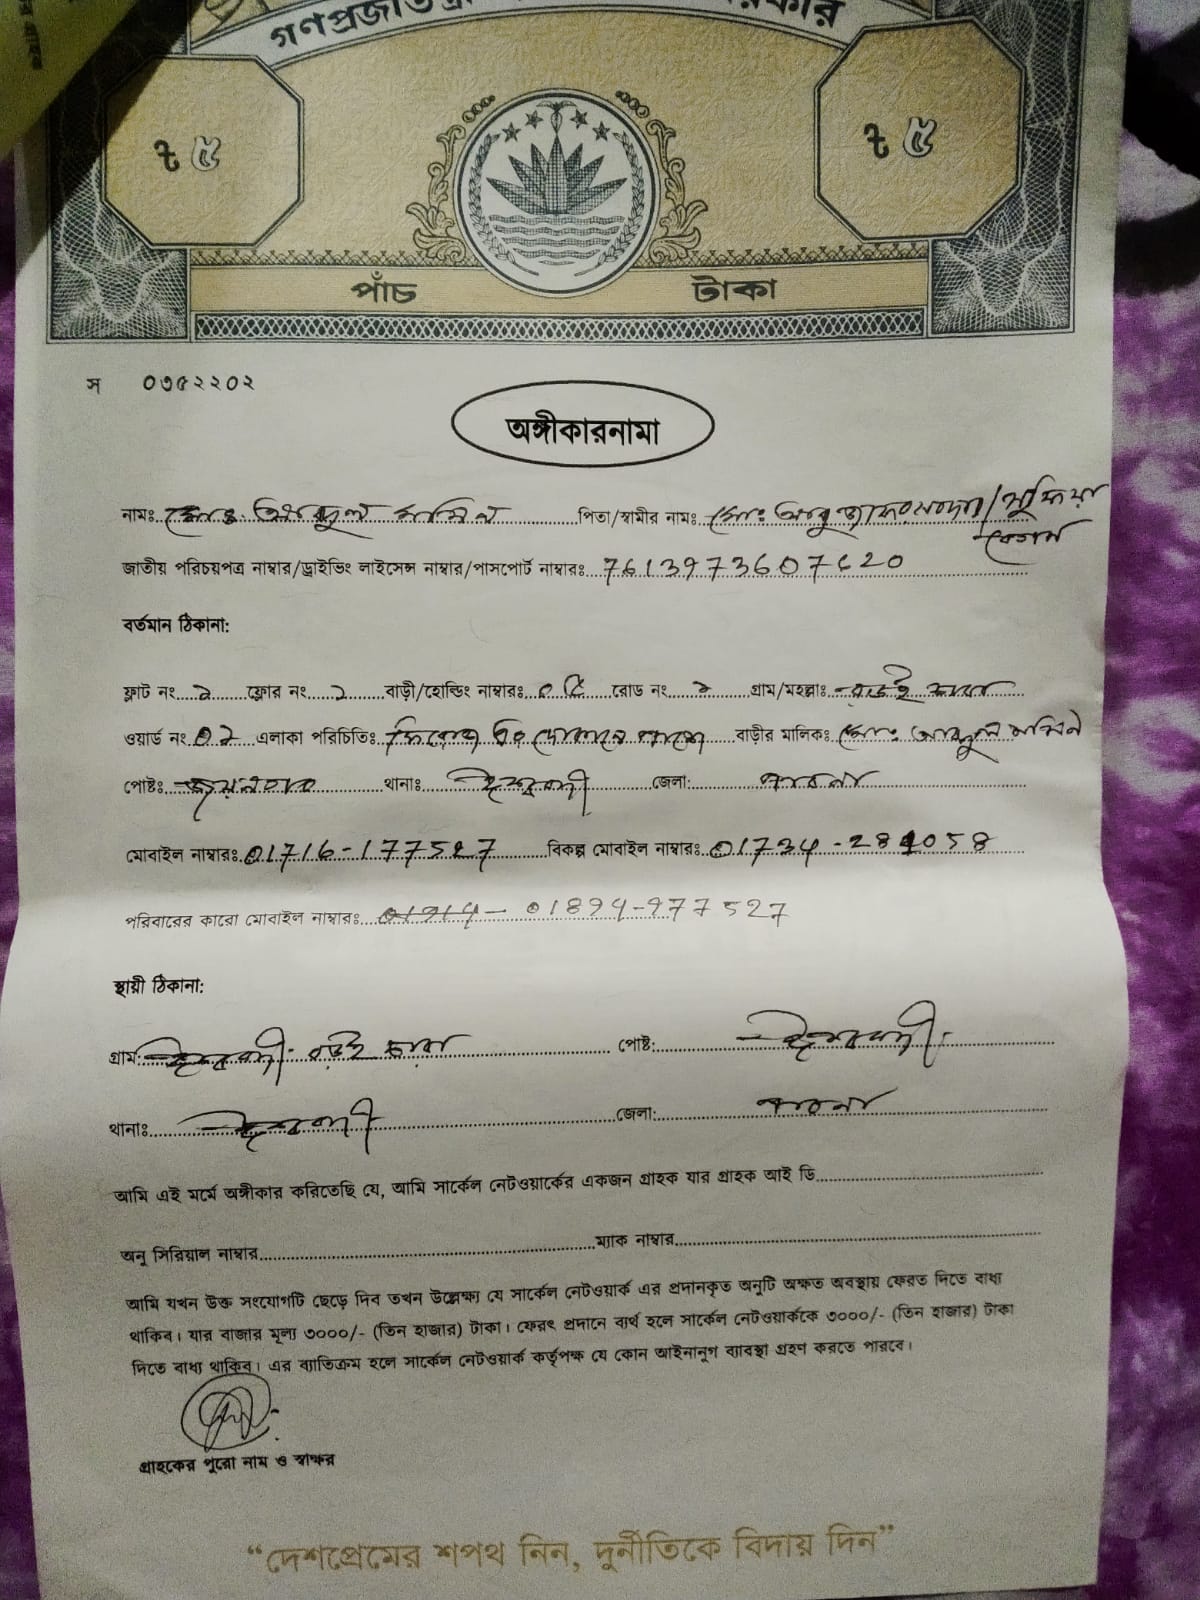 ৳ ৫
৳ ৫
পাঁচ টাকা
স ০৩৫২২০২
অঙ্গীকারনামা
নামঃ মোঃ আব্দুল মমিন পিতা/স্বামীর নামঃ মোঃ আবু / সুফিয়া
বেগম
জাতীয় পরিচয়পত্র নাম্বার/ড্রাইভিং লাইসেন্স নাম্বার/পাসপোর্ট নাম্বারঃ
বর্তমান ঠিকানা:
ফ্লাট নং ফ্লোর নং বাড়ী/হোল্ডিং নাম্বারঃ ০৫ রোড নং গ্রাম/মহল্লাঃ
ওয়ার্ড নং ০২ এলাকা পরিচিতিঃ বাড়ীর মালিকঃ মোঃ আব্দুল মমিন
পোষ্টঃ জয়নগর থানাঃ ঈশ্বরদী জেলা: পাবনা
মোবাইল নাম্বারঃ 01716-177527 বিকল্প মোবাইল নাম্বারঃ
পরিবারের কারো মোবাইল নাম্বারঃ 01894-977527
স্থায়ী ঠিকানা:
গ্রাম: ঈশ্বরদী পোষ্ট: ঈশ্বরদী
থানাঃ ঈশ্বরদী জেলা: পাবনা
আমি এই মর্মে অঙ্গীকার করিতেছি যে, আমি সার্কেল নেটওয়ার্কের একজন গ্রাহক যার গ্রাহক আই ডি
অনু সিরিয়াল নাম্বার ম্যাক নাম্বার
আমি যখন উক্ত সংযোগটি ছেড়ে দিব তখন উল্লেক্ষ্য যে সার্কেল নেটওয়ার্ক এর প্রদানকৃত অনুটি অক্ষত অবস্থায় ফেরত দিতে বাধ্য
থাকিব। যার বাজার মূল্য ৩০০০/- (তিন হাজার) টাকা। ফেরৎ প্রদানে ব্যর্থ হলে সার্কেল নেটওয়ার্ককে ৩০০০/- (তিন হাজার) টাকা
দিতে বাধ্য থাকিব। এর ব্যাতিক্রম হলে সার্কেল নেটওয়ার্ক কর্তৃপক্ষ যে কোন আইনানুগ ব্যাবস্থা গ্রহণ করতে পারবে।
গ্রাহকের পুরো নাম ও স্বাক্ষর
“দেশপ্রেমের শপথ নিন, দুর্নীতিকে বিদায় দিন”